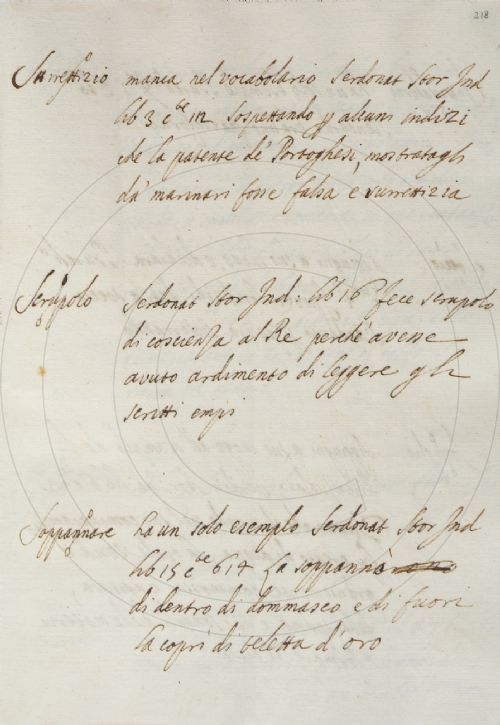 218
Surrettizio manca nel vocabolario Serdonat Stor Ind
lib 3 c. 112 sospettando p alcuni indizi
che la patente de' Portoghesi, mostratagli
da' marinari fosse falsa e surrettizia
Scrupolo Serdonat Stor Ind. lib 16 fece scrupolo
di coscienza al Re perche' avesse
avuto ardimento di leggere gli
scritti empi
Soppannare ha un solo esempio Serdonat Stor Ind
lib 15 c. 614 La soppannò
di dentro di dommasco e di fuori
la coprì di teletta d'oro